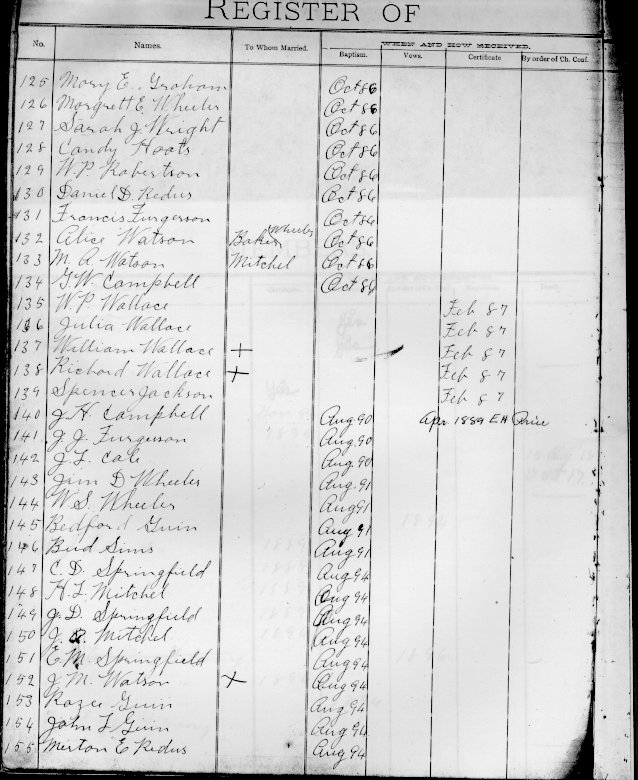 REGISTER OF
No. Names. To Whom Married. WHEN AND HOW RECEIVED.
Baptism. Vows. Certificate By order of Ch. Conf.
125 Mary E. Graham Oct 86
126 Morgrett E. Wheeler Oct 86
127 Sarah J. Wright Oct 86
128 Candy Hoots Oct 86
129 W.P. Robertson Oct 86
130 Daniel D. Redus Oct 86
131 Francis Furgerson Oct 86
132 Alice Watson Baker Wheeler Oct 86
133 M. A. Watson Mitchel Oct 86
134 G.W. Campbell Oct 86
135 W.P. Wallace Feb 87
136 Julia Wallace Feb 87
137 William Wallace + Feb 87
138 Richard Wallace + Feb 87
139 Spencer Jackson Feb 87
140 J. H. Campbell Aug 90 Apr 1889 E H Price
141 J. J. Furgerson Aug 90
142 J. L. Cale Aug 90
143 Jim D Wheeler Aug. 91
144 W. S. Wheeler Aug 91
145 Bedford Guin Aug 91
146 Bud Sims Aug 91
147 C. D. Springfield Aug 94
148 H. L. Mitchel Aug 94
149 J. D. Springfield Aug 94
150 J. Mitchel Aug 94
151 E. M. Springfield Aug 94
152 J. M. Watson + Aug 94
153 Guin Aug 94
154 John L Guin Aug 94
155 Merton E Redus Aug 94